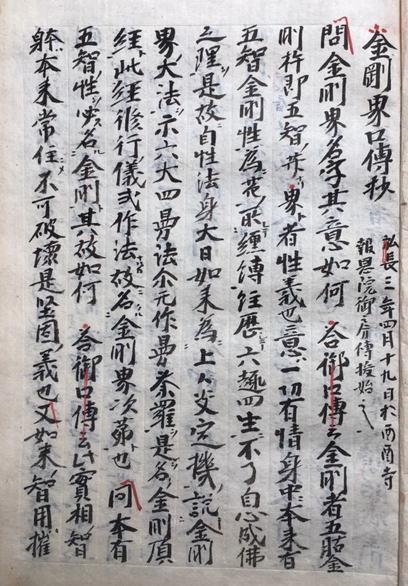 金剛界口傳抄
弘長三年四月十九日於西酉寺
報恩院御房傳授始之
問金剛界名字其意如何 答御口傳云金剛者五股金
剛杵即五智也界者性義也意一切有情身中本来有
五智金剛性為煩惱纏縛往歴六趣四生不了自心成佛
之理是故自性法身大日如来為上々父定機説金剛
界大法示六大四曼法尓元作曼荼羅是名金剛頂
經此經修行儀式作法故名金剛界次第也 問本有
五智性必名金剛其故如何 答御口傳云此實相智
躰本来常住不可破壞是堅固義也又如来智用摧